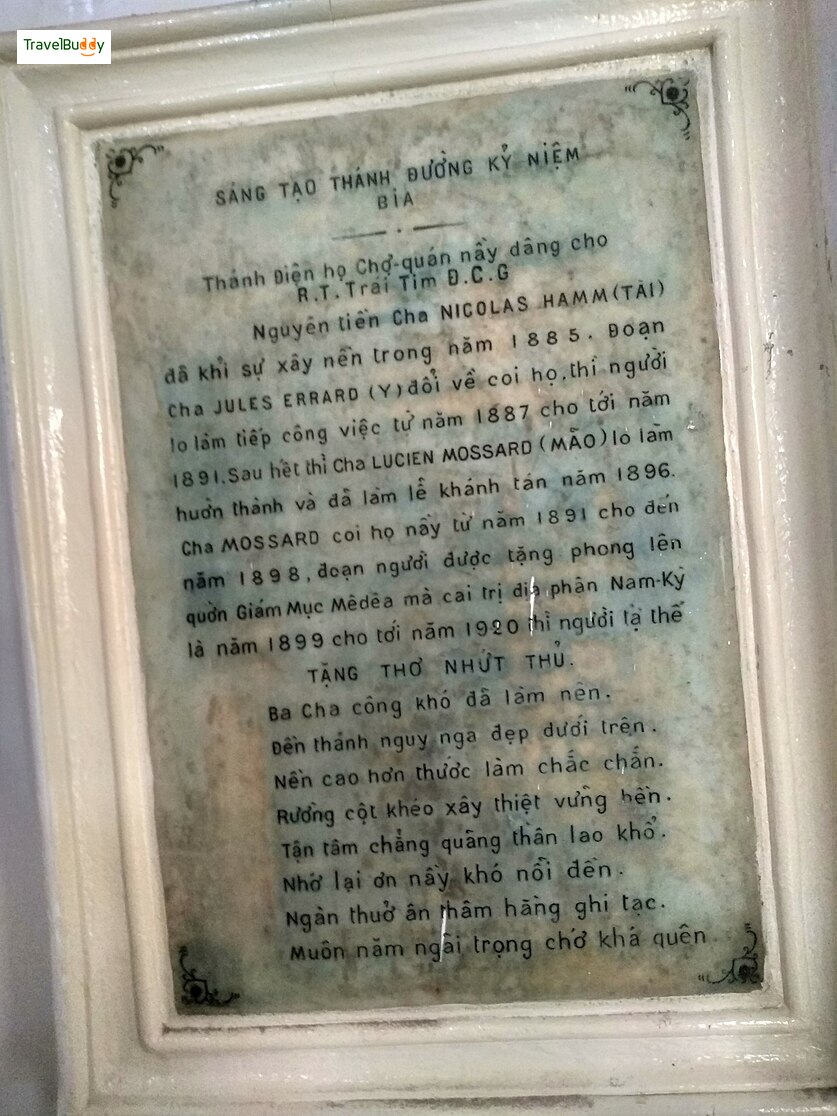 TravelBuddy
SÁNG TẠO THÁNH ĐƯỜNG KỶ NIỆM
BIA
Thánh Điện họ Chợ-quán nầy dâng cho
R.T. Trái Tim Đ.C.G
Nguyên tiền Cha NICOLAS HAMM (TÀI)
đã khỉ sự xây nền trong năm 1885. Đoạn
Cha JULES ERRARD (Y) đổi về coi họ, thì người
lo làm tiếp công việc từ năm 1887 cho tới năm
1891. Sau hết thì Cha LUCIEN MOSSARD (MÃO) lo làm
huờn thành và đã làm lễ khánh tán năm 1896.
Cha MOSSARD coi họ nầy từ năm 1891 cho đến
năm 1898, đoạn người được tặng phong lên
quờn Giám Mục Mêdêa mà cai trị địa phân Nam-Kỳ
là năm 1899 cho tới năm 1920 thì người tạ thế
TẶNG THƠ NHỨT THỦ.
Ba Cha công khó đã làm nên.
Đền thánh nguy nga đẹp dưới trên.
Nền cao hơn thước làm chắc chắn.
Rường cột khéo xây thiệt vững bền.
Tận tâm chẳng quãng thân lao khổ.
Nhớ lại ơn nầy khó nỗi đền.
Ngàn thuở ân thâm hằng ghi tạc.
Muôn năm ngãi trọng chớ khá quên